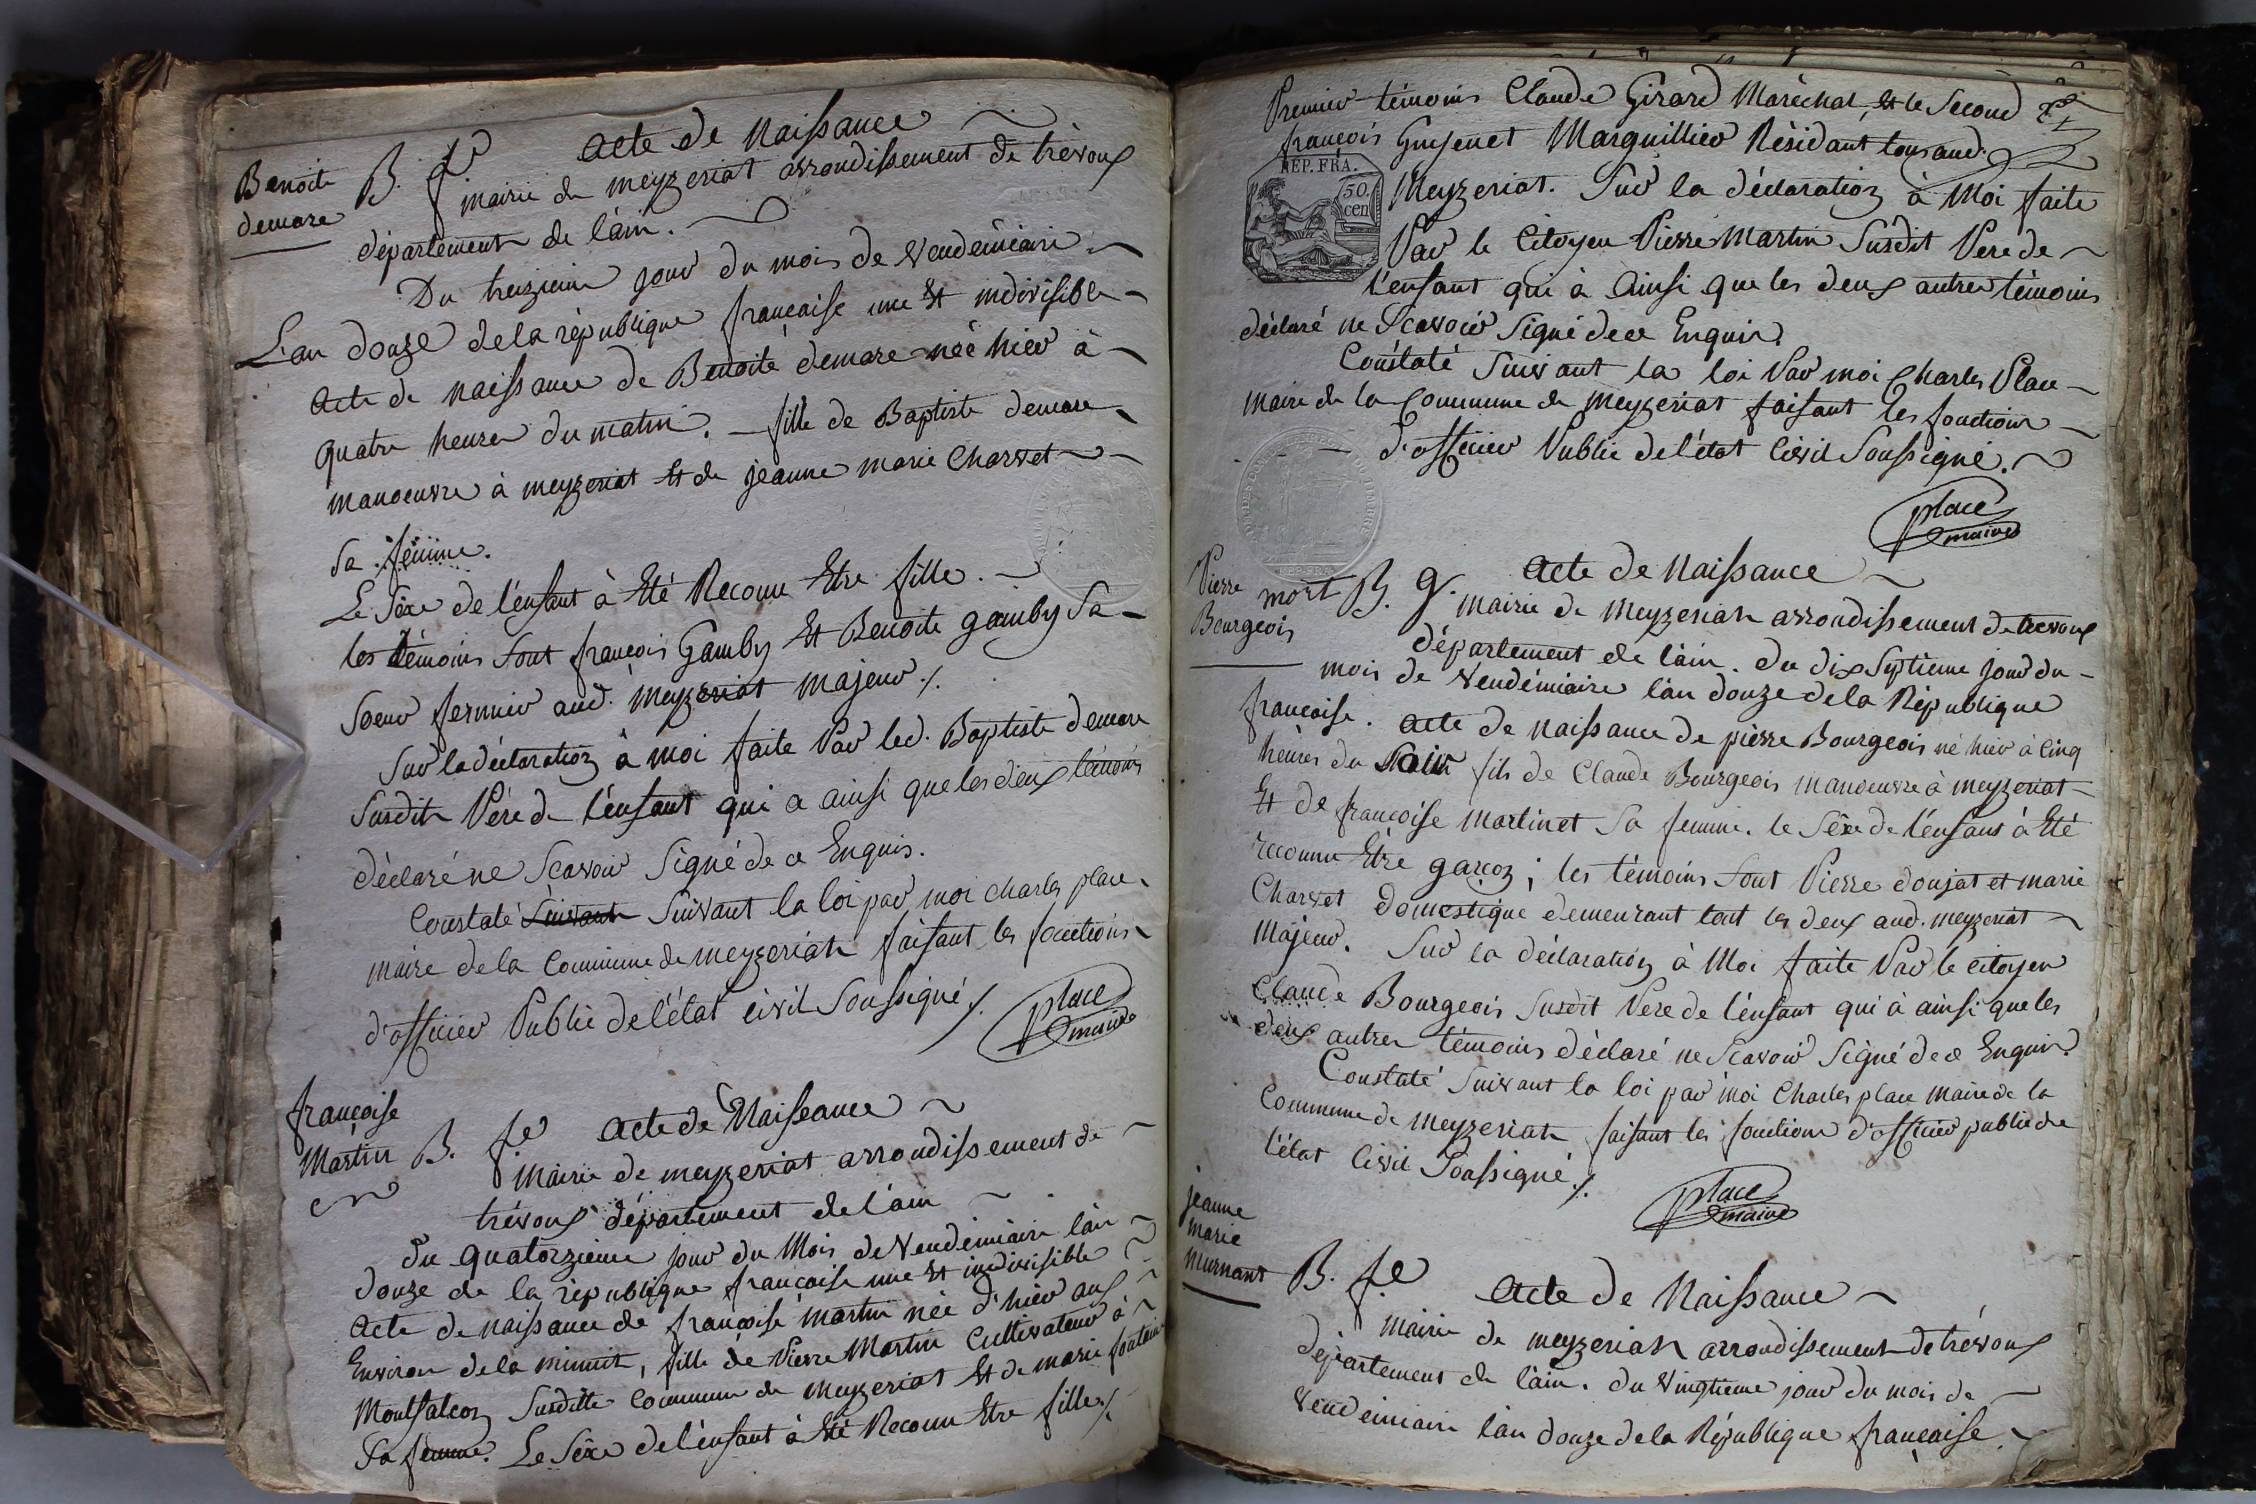 Benoite
demare
B. fe
acte de Naissance
mairie de meyzeriat arrondissement de trévoux
département de l'ain.
Du treizieme jour du mois de vendémiaire
L'an douze de la république francaise une Et indivisible
acte de naissance de Benoite demare née hier à
quatre heures du matin. fille de Baptiste demare
manoeuvre à meyzeriat Et de jeanne marie Charvet
sa femme.
Le Sèxe de l'enfant à Eté Reconu Etre fille.
les témoins sont françois Gamby Et Benoite gamby Sa
Soeur fermier aud. meyzeriat majeur ./.
Sur la déclaration à moi faite Par led. Baptiste demare
Susdit Père de l'enfant qui a ainsi que les deux témoins
déclaré ne Scavoir Signé de ce Enquis.
Constaté Suivant Suivant la loi par moi charles place
maire de la commune de meyzeriat faisant les fonctions
d'officier Public de l'état civil Soussigné ./.
place
maire
françoise
Martin
B. fe
acte de Naissance
Mairie de meyzeriat arrondissement de
trévoux département de l'ain
Du quatorzieme jour du Mois de Vendémiaire l'an
douze de la république francaise une Et indivisible
acte de naissance de françoise martin née d'hier aux
Environ de la minuit, fille de Pierre Martin Cultivateur à
Montfalcon Susditte commune de meyzeriat Et de marie fontaine
Sa femme. Le Sèxe de l'enfant à Eté Reconu Etre fille ./.
Premier témoins Claude Girard Maréchal, Et le Second
françois Guyenet Marguillier Résidant tous aud.
REP. FRA.
50
cen
Meyzeriat. Sur la déclaration à Moi faite
Par le Citoyen Pierre Martin Susdit Pere de
l'enfant qui à Ainsi que les deux autres témoins
déclaré ne Scavoir Signé de ce Enquis.
Constaté Suivant la loi Par moi Charles Place
maire de la Commune de meyzeriat faisant les fonctions
d'officier Public de l'état Civil Soussigné.
place
maire
Pierre
Bourgeois
mort B. g.
acte de Naissance
mairie de Meyzeriat arrondissement de trevoux
département de l'ain. du dix Septieme jour du
mois de Vendémiaire l'an douze de la République
francaise. acte de naissance de pièrre Bourgeois né hier à Cinq
heures du Soir fils de Claude Bourgeois manoeuvre à meyzeriat
Et de françoise martinet Sa femme. le Sèxe de l'enfant à Eté
reconnu Etre garçon; les témoins sont Pierre donjat et marie
Charvet domestique demeurant tout les deux aud. meyzeriat
Majeur. Sur la déclaration à Moi faite Par le citoyen
Claude Bourgeois Susdit Pere de l'enfant qui à ainsi que les
deux autres témoins déclaré ne Scavoir Signé de ce Enquis.
Constaté Suivant la loi par moi Charles place Maire de la
Commune de Meyzeriat faisant les fonctions d'officier public de
l'état Civil Soussigné ./.
place
maire
jeanne
marie
Murnant
B. fe
acte de Naissance
mairie de meyzeriat arrondissement de trévoux
département de l'ain. du vingtieme jour du mois de
Vendemiaire l'an douze de la République française